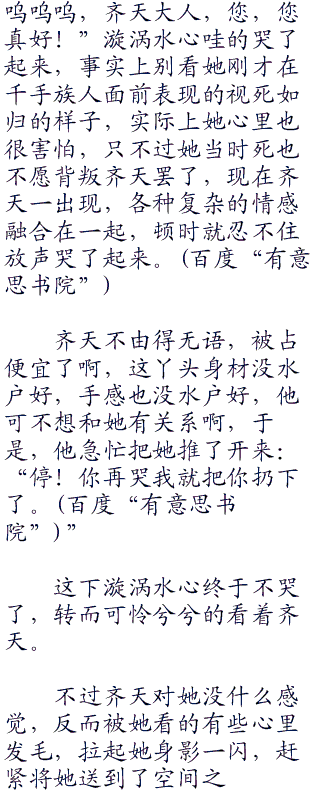 呜呜呜，齐天大人，您，您
真好！”漩涡水心哇的哭了
起来，事实上别看她刚才在
千手族人面前表现的视死如
归的样子，实际上她心里也
很害怕，只不过她当时死也
不愿背叛齐天罢了，现在齐
天一出现，各种复杂的情感
融合在一起，顿时就忍不住
放声哭了起来。(百度“有意
思书院”)
齐天不由得无语，被占
便宜了啊，这丫头身材没水
户好，手感也没水户好，他
可不想和她有关系啊，于
是，他急忙把她推了开来：
“停！你再哭我就把你扔下
了。(百度“有意思书
院”)”
这下漩涡水心终于不哭
了，转而可怜兮兮的看着齐
天。
不过齐天对她没什么感
觉，反而被她看的有些心里
发毛，拉起她身影一闪，赶
紧将她送到了空间之